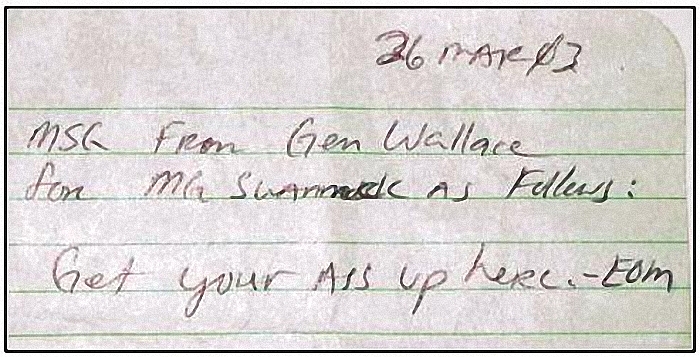 26 MAR 03
MSG From Gen Wallace
for MG Swannack As Follows:
Get your Ass up here. - EOM